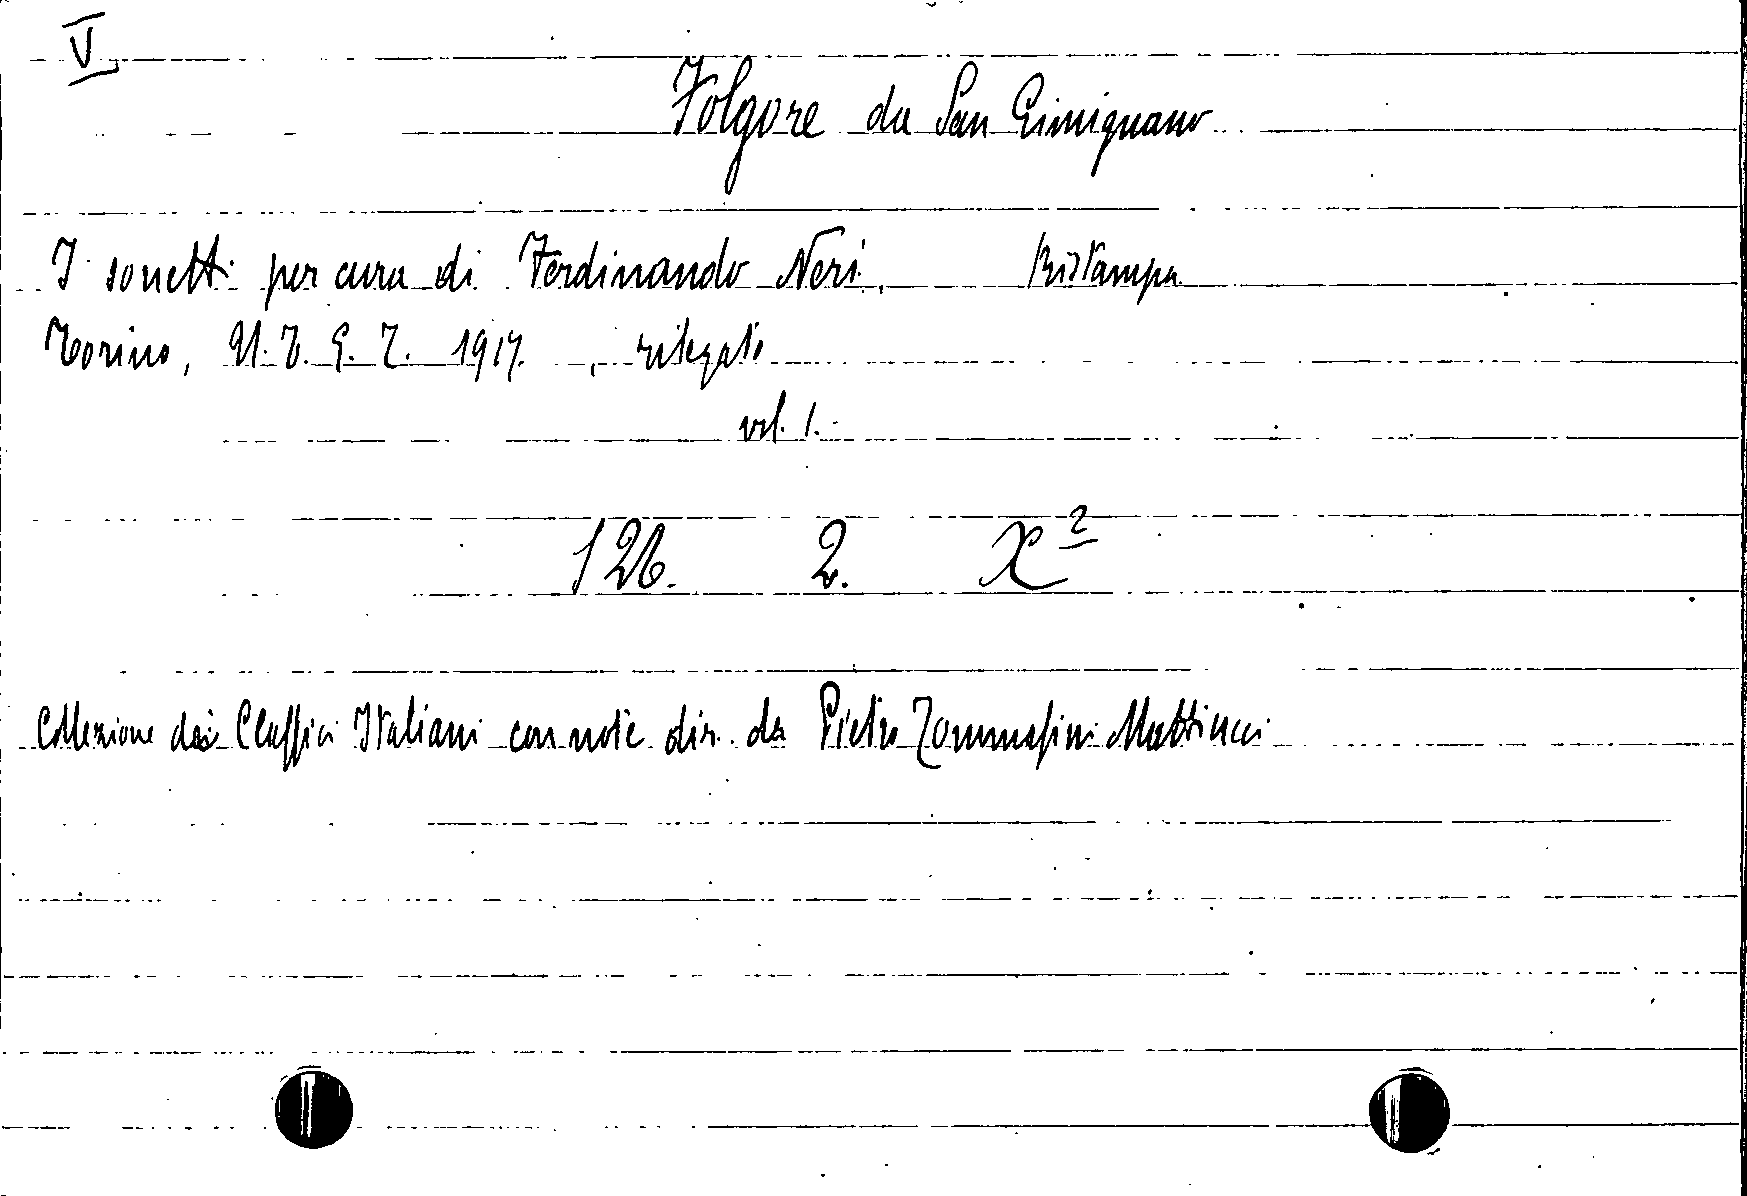 V
Folgore da San Gimignano
I sonetti per cura di Ferdinando Neri. Ristampa
Torino, U. T. E. T. 1917. , rilegato
vol. 1.
126. 2. X²
Collezione dei Classici Italiani con note dir. da Pietro Tommasini Mattiucci